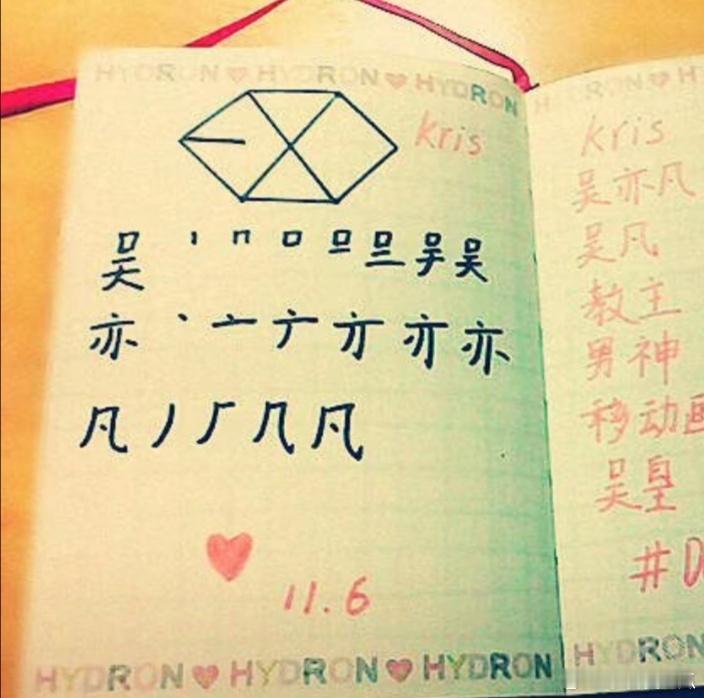 HYDRON ♥ HYDRON ♥ HYDRON
Kris
吴 丨 冂 口 吴
亦 丶 亠 亦
凡 丿 几 凡
♥
11.6
HYDRON ♥ HYDRON ♥ HYDRON
HYDRON ♥ H
kris
吴亦凡
吴凡
教主
男神
移动画
吴皇
#D
HYDRON